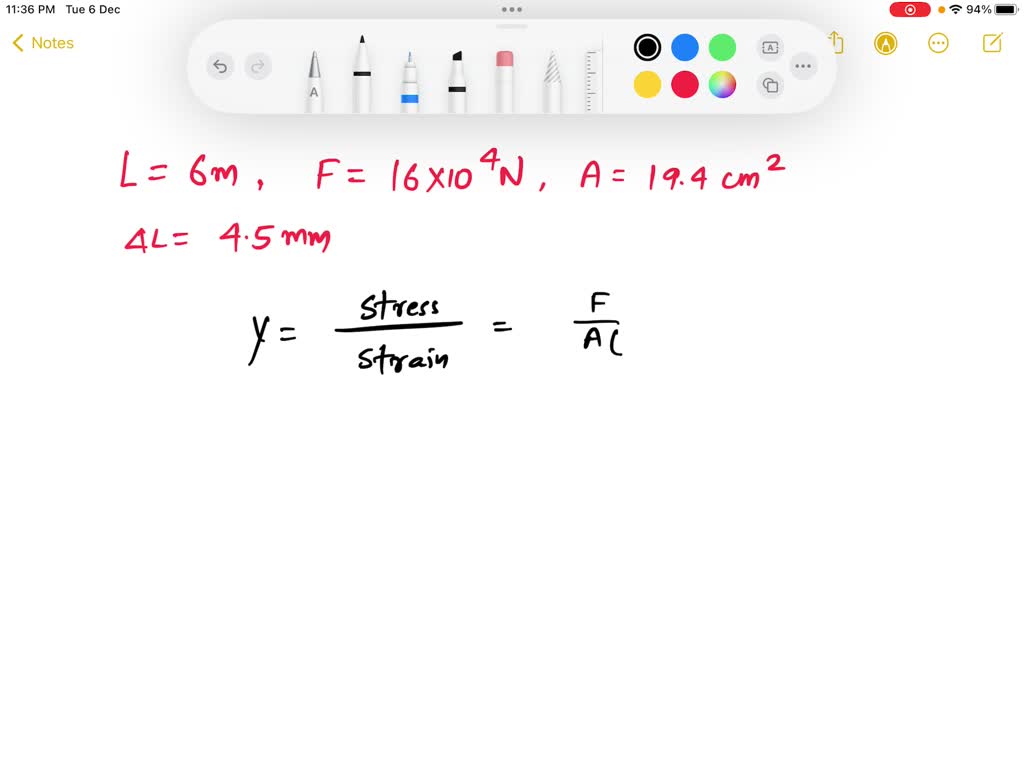 11:36 PM Tue 6 Dec
94%
Notes
A
A
A
L = 6m, F = 16×10⁴N, A = 19.4 cm²
ΔL = 4.5 mm
Y = stress / strain = F / A(